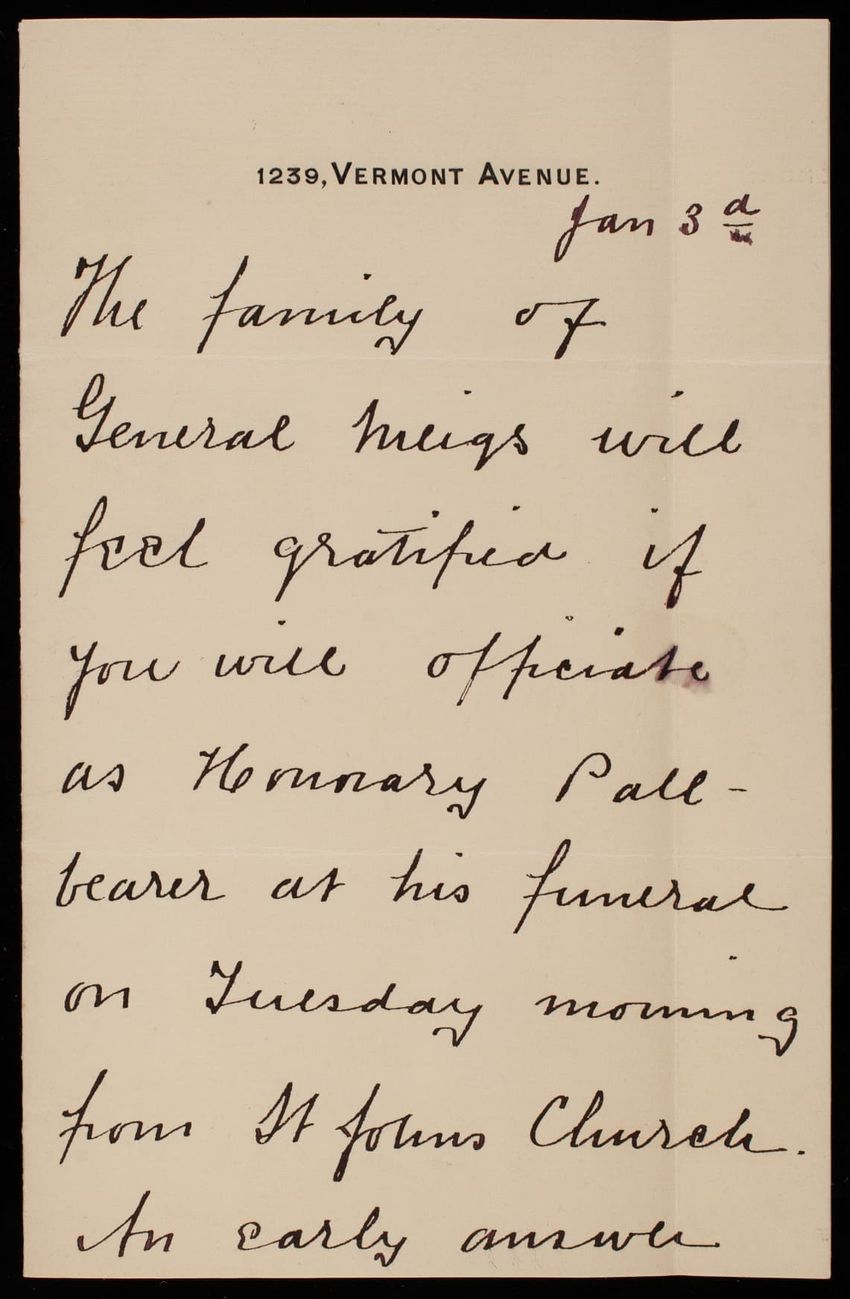 1239, VERMONT AVENUE.
Jan 3d
The family of
General Meigs will
feel gratified if
you will officiate
as Honorary Pall-
bearer at his funeral
on Tuesday morning
from St Johns Church.
An early answer